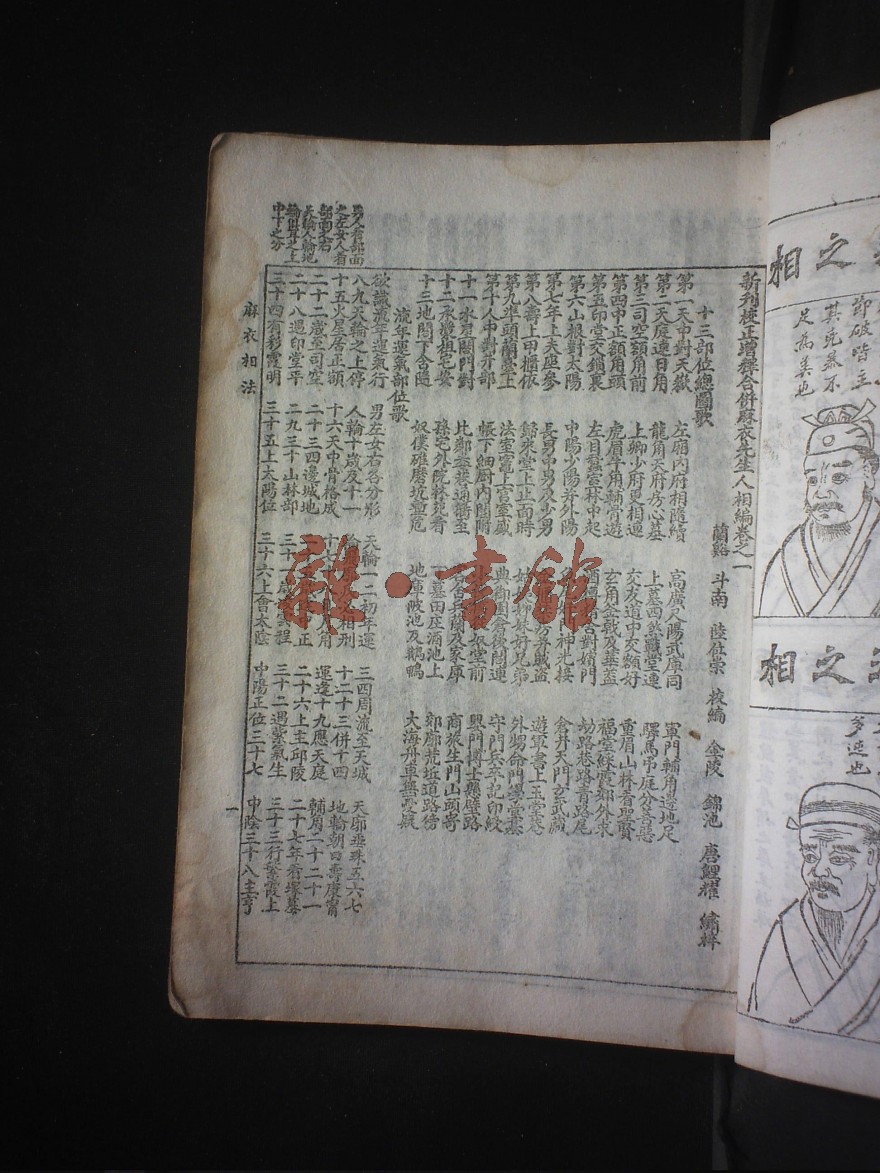 新刊校正增釋合併麻衣先生人相編卷之一
蘭谿 斗南 陸位崇 校編 金陵 錦池 唐鯉耀 繡梓
十三部位總圖歌
第一天中對天嶽 左廂內府相隨續 高廣尺陽武庫同 軍門輔角邊地足
第二天庭連日角 龍角天府房心墓 上墓四煞戰堂連 驛馬弔庭分善惡
第三司空額角前 上卿少府更相連 交友道中交額好 重眉山林看聖賢
第四中正額角頭 虎眉牛角輔骨遊 玄角斧戟及華蓋 福堂綵霞郊外求
第五印堂交鎖裏 左目蠶室林中起 酒樽 對嬪門 劫路巷路青路尾
第六山根對太陽 中陽少陽并外陽 門神光接 倉井天門玄武藏
第七年上夫座參 長男中男及少男 賊盜 遊軍書上玉堂菴
第八壽上甲櫃依 歸來堂上正面時 姑姨 好兄弟 外甥命門學堂基
第九準頭蘭臺上 法室竈上宮室盛 典御園倉後閣連 守門兵卒記印綬
第十人中對井部 帳下細厨內閣附 堂前 興門博士懸壁路
十一水星閣門對 比鄰委巷通衢至 客舍兵蘭及家庫 商旅生門山頭寄
十二承漿祖宅安 孫宅外院林苑看 墓田庄酒池上 郊廓荒坵道路傍
十三地閣下舍隨 奴僕碓磨坑塹危 地庫陂池及鵝鴨 大海舟車無憂疑
流年運氣部位歌
欲識流年運氣行 男左女右各分形 天輪一二初年運 三四周流至天城 天廓垂珠五六七
八九天輪之上停 人輪十歲及十一 輪 相刑 十二十三併十四 地輪朝口壽康寧
十五火星居正額 十六天中骨格成 十七十 角 運逢十九應天庭 輔角二十二十一
二十二歲至司空 二十三四邊城地 二十 正 二十六上主邱陵 二十七年看塚墓
二十八遇印堂平 二九三十山林部 三十一 程 三十二遇紫氣生 三十三行繁霞上
三十四有彩霞明 三十五上太陽位 三十六上會太陰 中陽正位三十七 中陰三十八主亨
男人看部面
之左女人看
部面之右
天輪人輪地
輪俱耳之上
中下之分
麻衣相法
一
雜·書館
相之
即破皆主
其死無不
足為美也
相之
多逆也